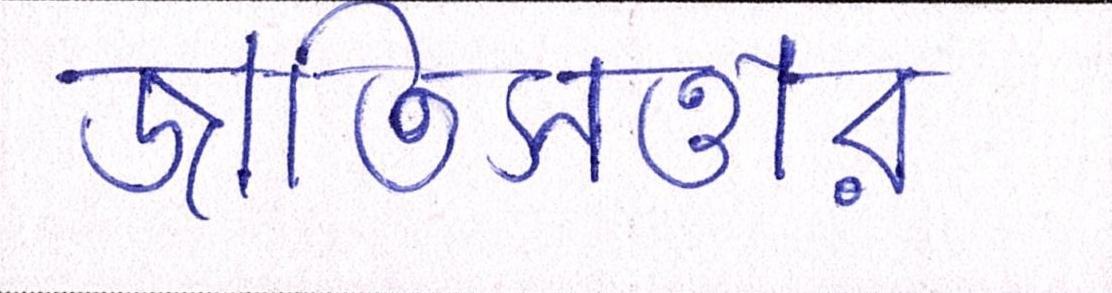 জাতিসত্তার